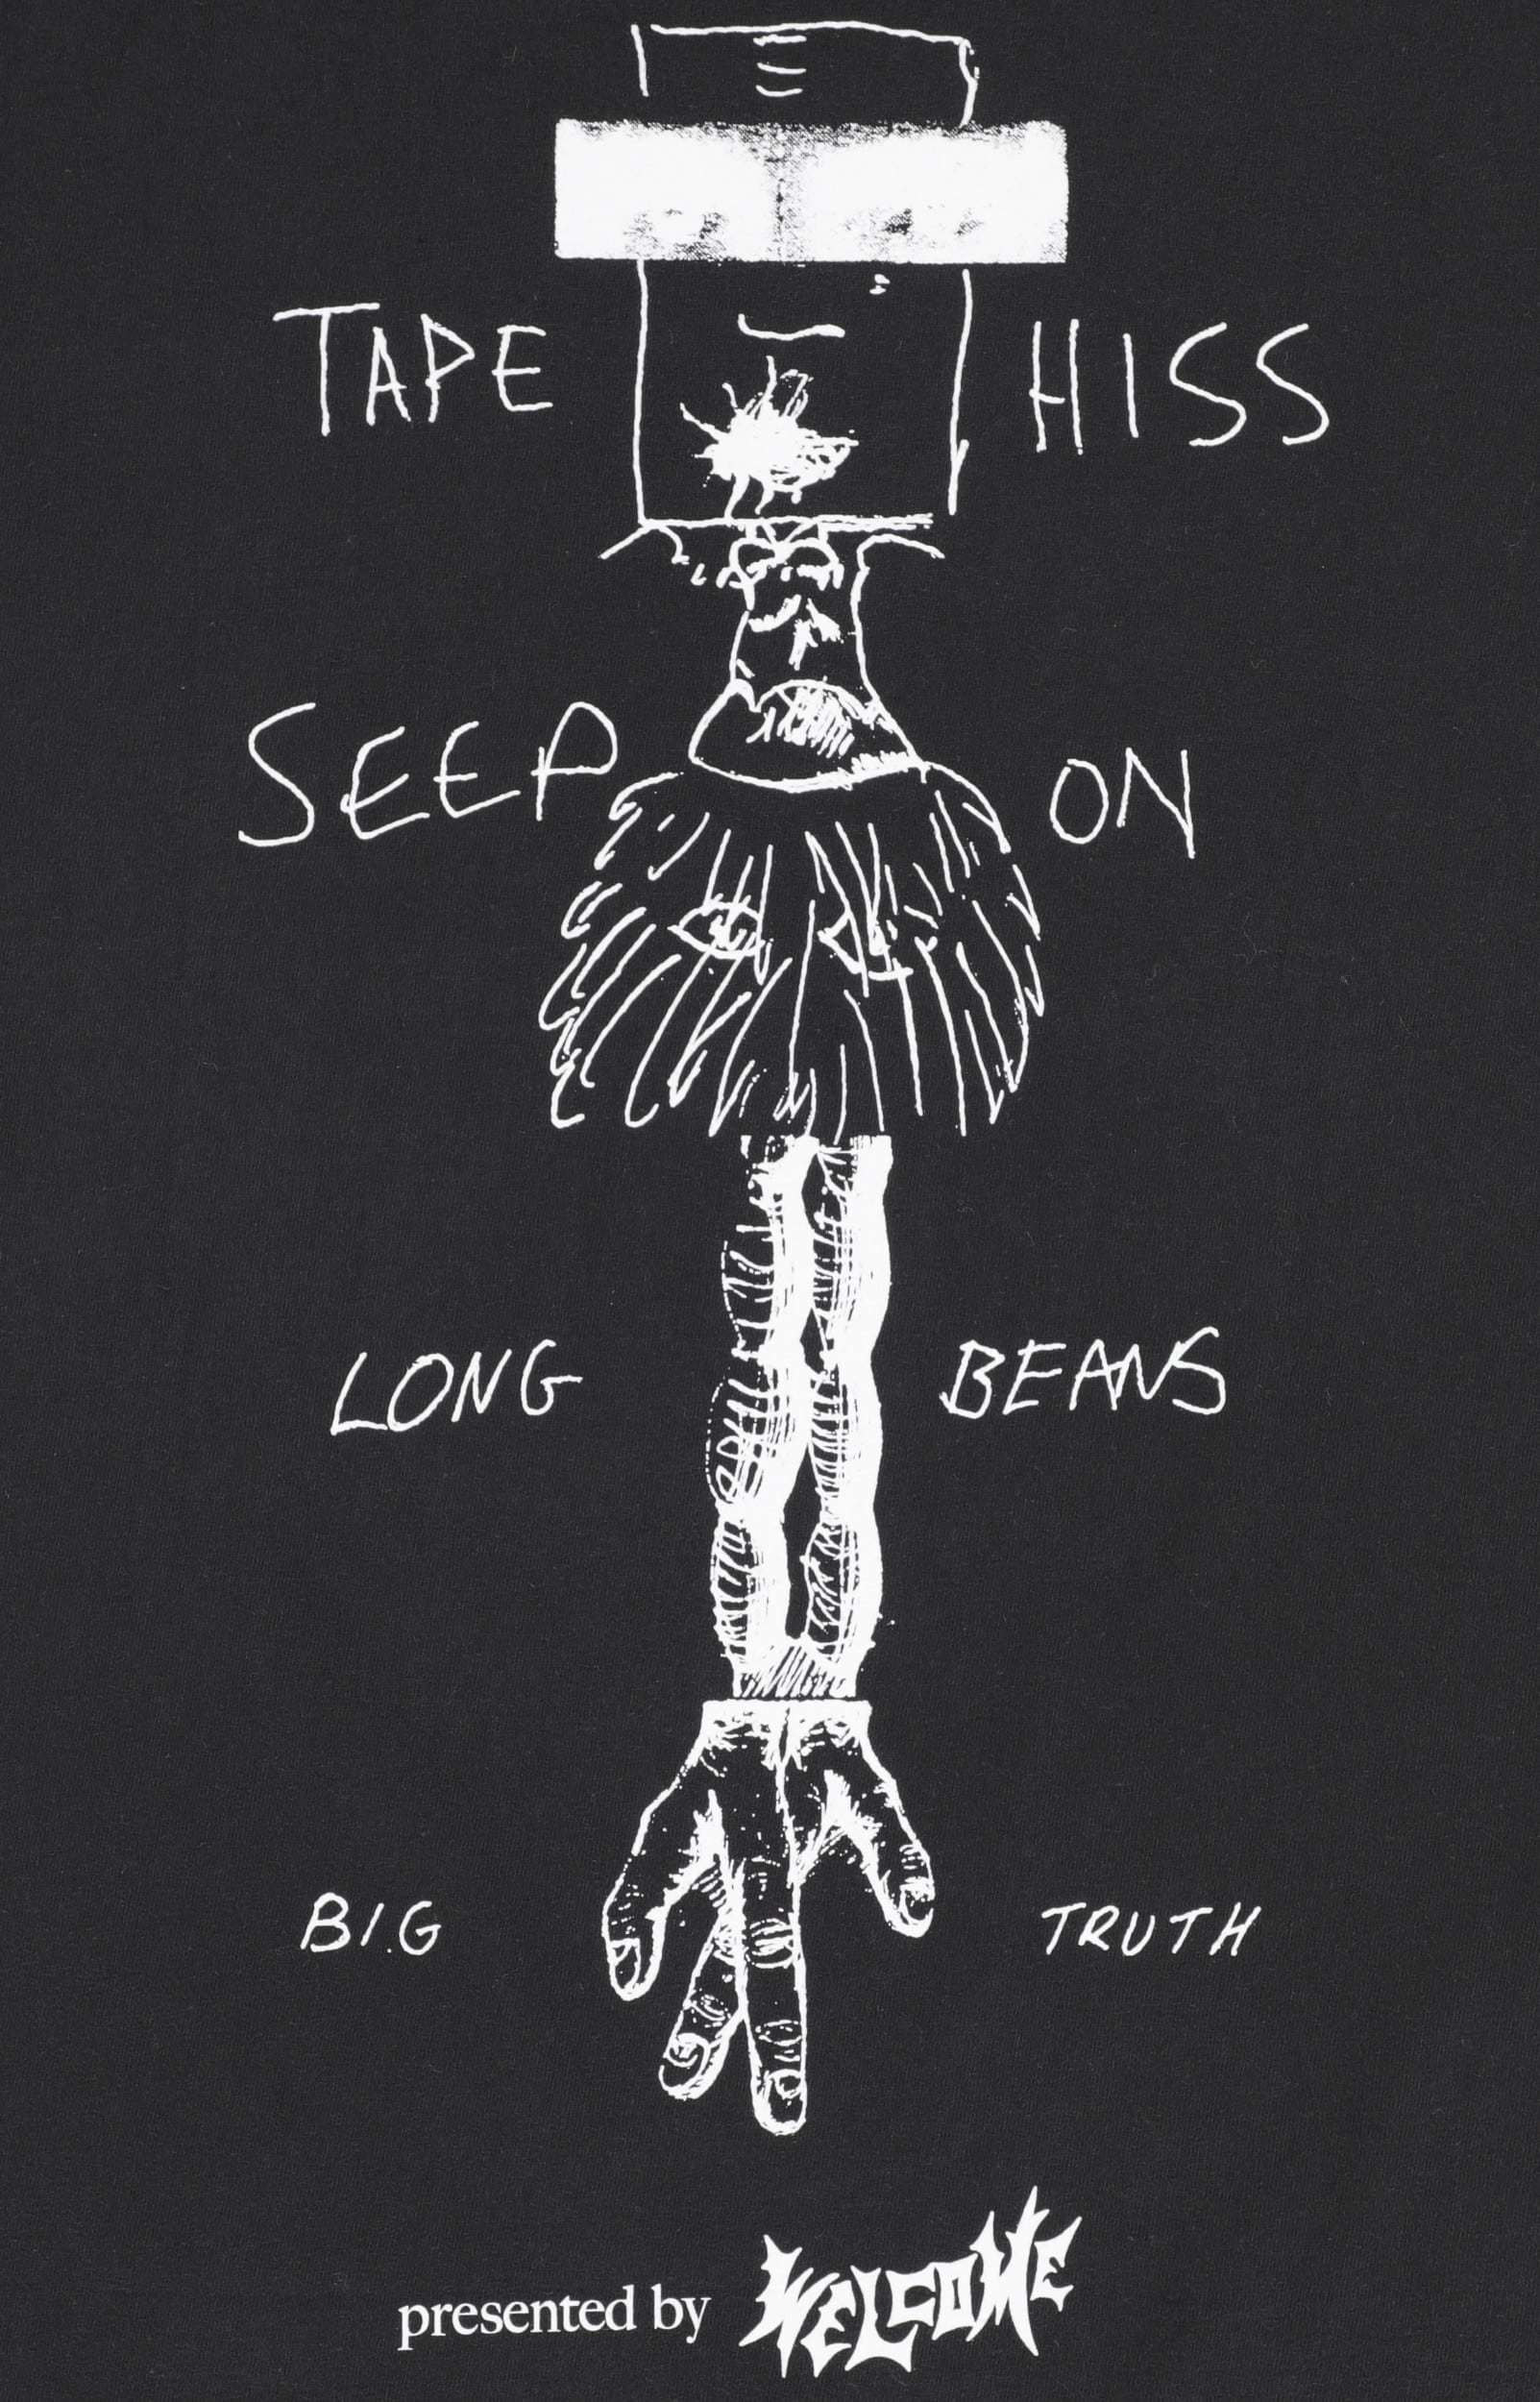 TAPE HISS
SEEP ON
LONG BEANS
BIG TRUTH
presented by WELCOME